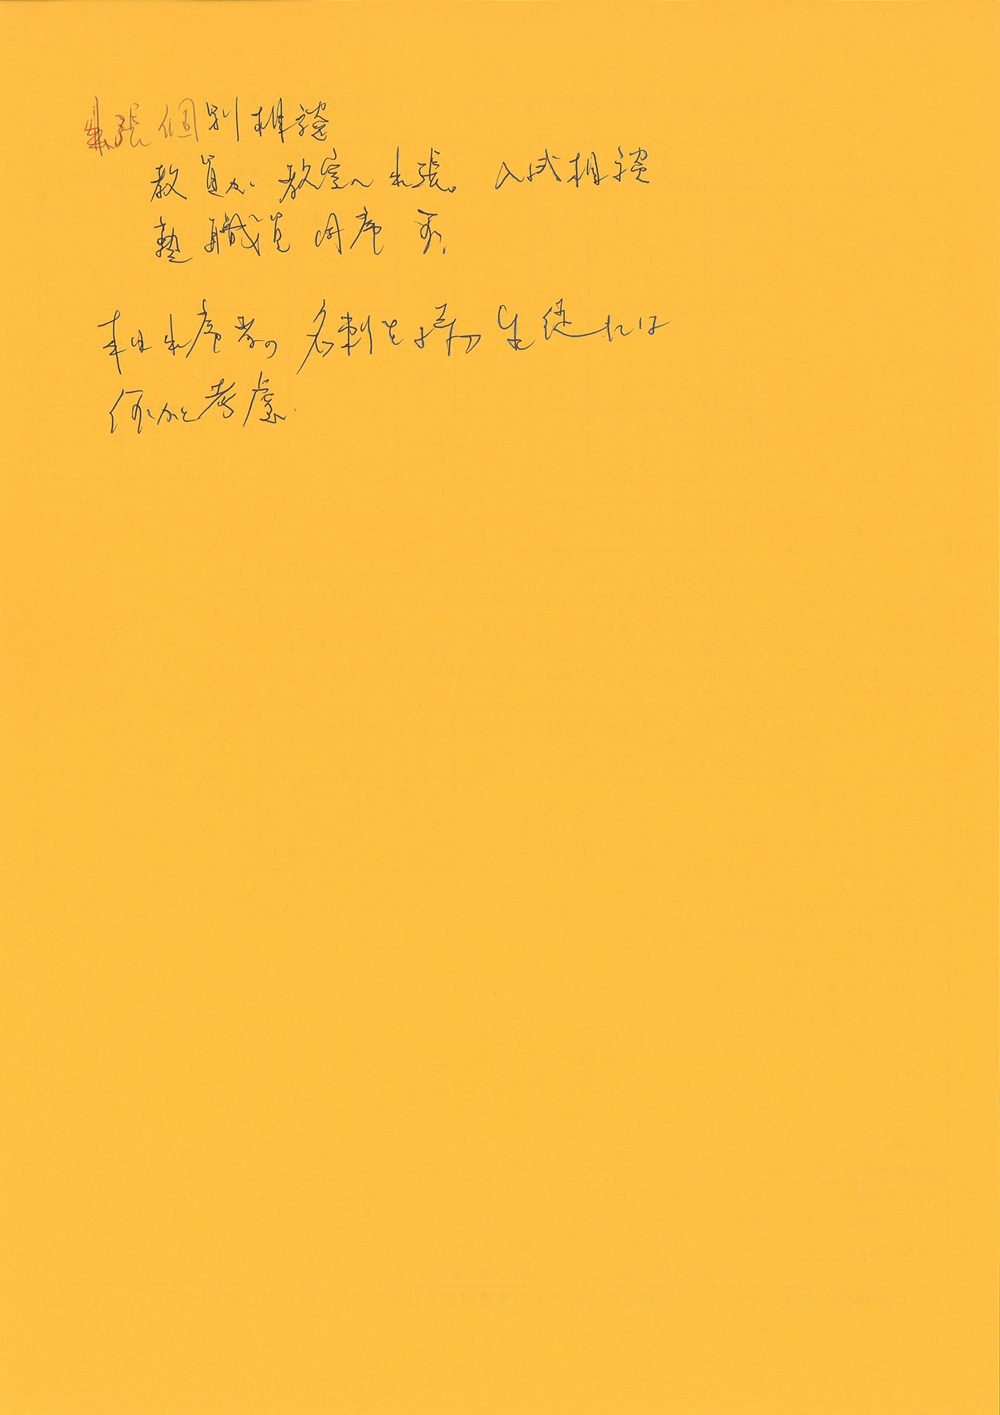 出張個別相談
教員が教室へ出張。入試相談
塾職員同席可、
本日出席者の名刺を持つ生徒には
何かと考慮。